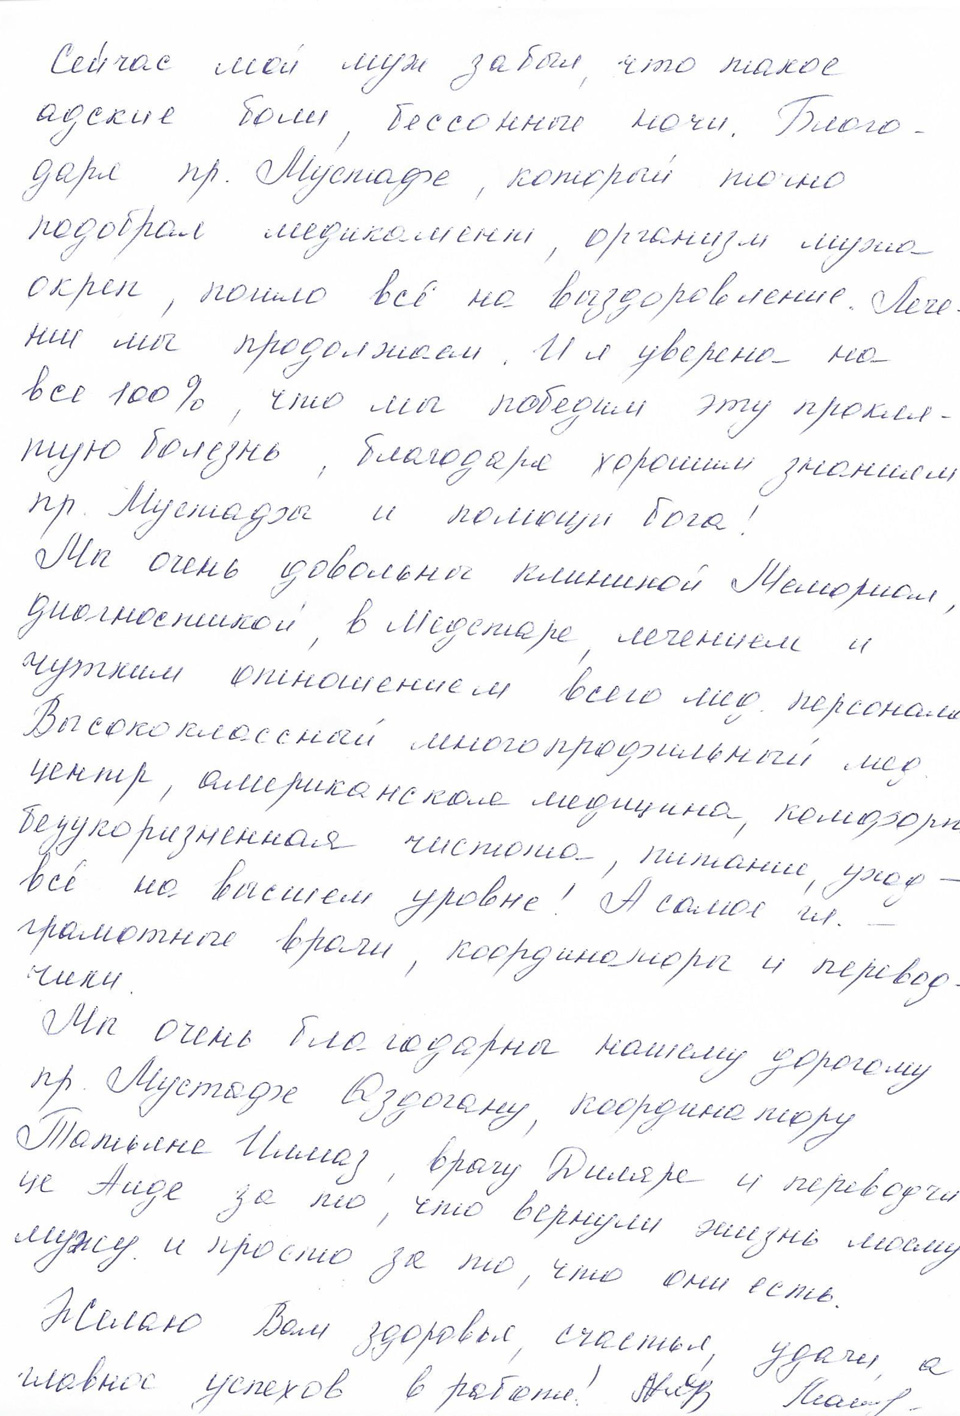 Сейчас мой муж забыл, что такое
адские боли, бессонные ночи. Благо-
даря пр. Мустафе, который точно
подобрал медикамент, организм мужа
окреп, пошло всё на выздоровление. Лече-
ние мы продолжаем. И я уверена на
все 100%, что мы победим эту прокля-
тую болезнь, благодаря хорошим знаниям
пр. Мустафы и помощи бога!
Мы очень довольны клиникой Мемориал,
диагностикой, в Медстаре, лечением и
чутким отношением всего мед. персонала
Высококлассный многопрофильный мед.
центр, американская медицина, комфорт
безукоризненная чистота, питание, уход —
всё на высшем уровне! А самое гл. —
грамотные врачи, координаторы и перевод-
чики.
Мы очень благодарны нашему дорогому
пр. Мустафе Оздогану, координатору
Татьяне Илмаз, врачу Диляре и переводчи
це Аиде за то, что вернули жизнь моему
мужу и просто за то, что они есть.
Желаю Вам здоровья, счастья, удачи, а
главное успехов в работе!